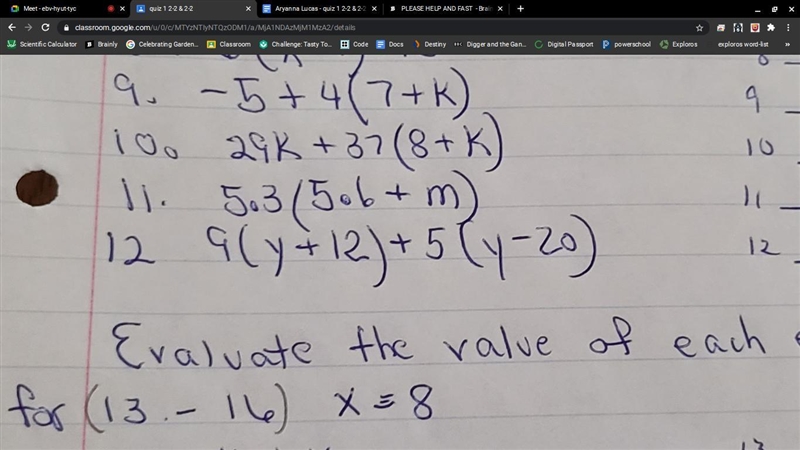 Meet - ebv-hyut-tyc quiz 1 2-2 & 2-2 Aryanna Lucas - quiz 1 2-2 & 2-2 PLEASE HELP AND FAST - Brain
classroom.google.com/u/0/c/MTYzNTIyNTQzODM1/a/MjA1NDAzMjM1MzA2/details
Scientific Calculator Brainly Celebrating Garden... Classroom Challenge: Tasty Te... Outlook Docs Destiny Digger and the Gan... Digital Passport powerschool Exploros exploros word-list
8
9. -5 + 4(7+K) 9
10. 29K + 37(8+K) 10
11. 5.3(5.6 + m) 11
12 9(y+12)+5(y-20) 12
Evaluate the value of each
for (13.-16) x = 8
13